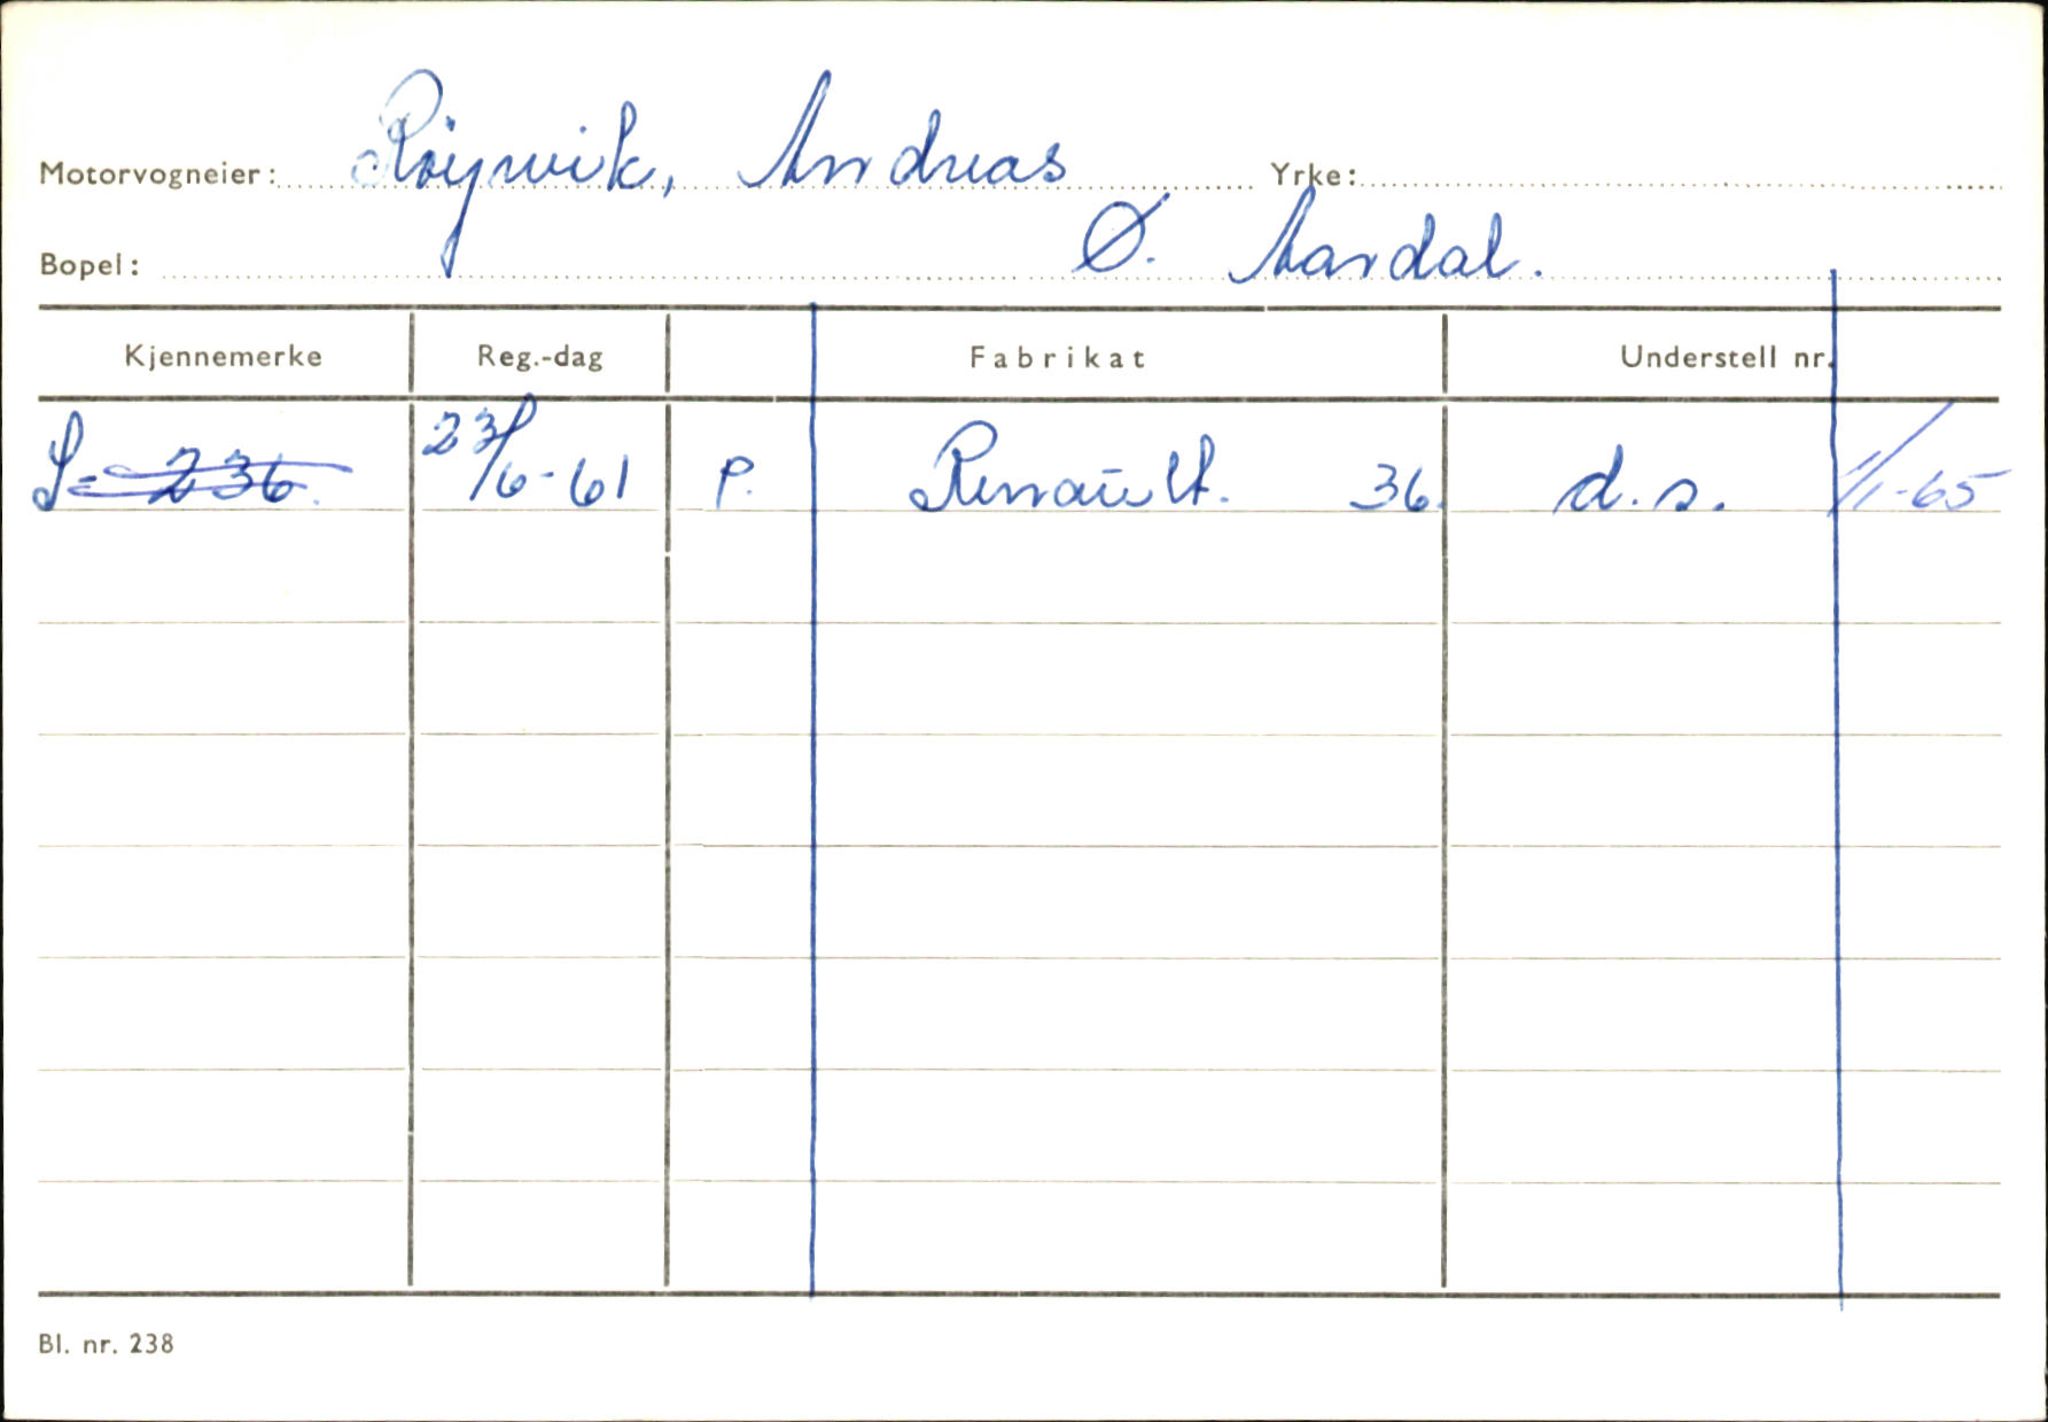 Motorvogneier: Røyrvik, Andreas Yrke:
Bopel: Ø. Aardal.
Kjennemerke Reg.-dag Fabrikat Understell nr.
S-236. 23/6-61 P. Renault. 36. d.s. 1/1-65
Bl. nr. 238